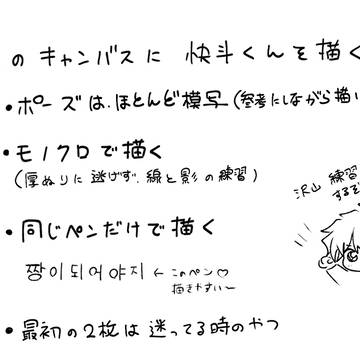 のキャンバスに 快斗くんを描く
•ポーズは、ほとんど模写(参考にしながら描い
•モノクロで描く
(厚ぬりに逃げず、線と影の練習)
沢山 練習
するぞ
•同じペンだけで描く
짱이되어야지 ← このペン♡
描きやすい〜
•最初の2枚は迷ってる時のやつ